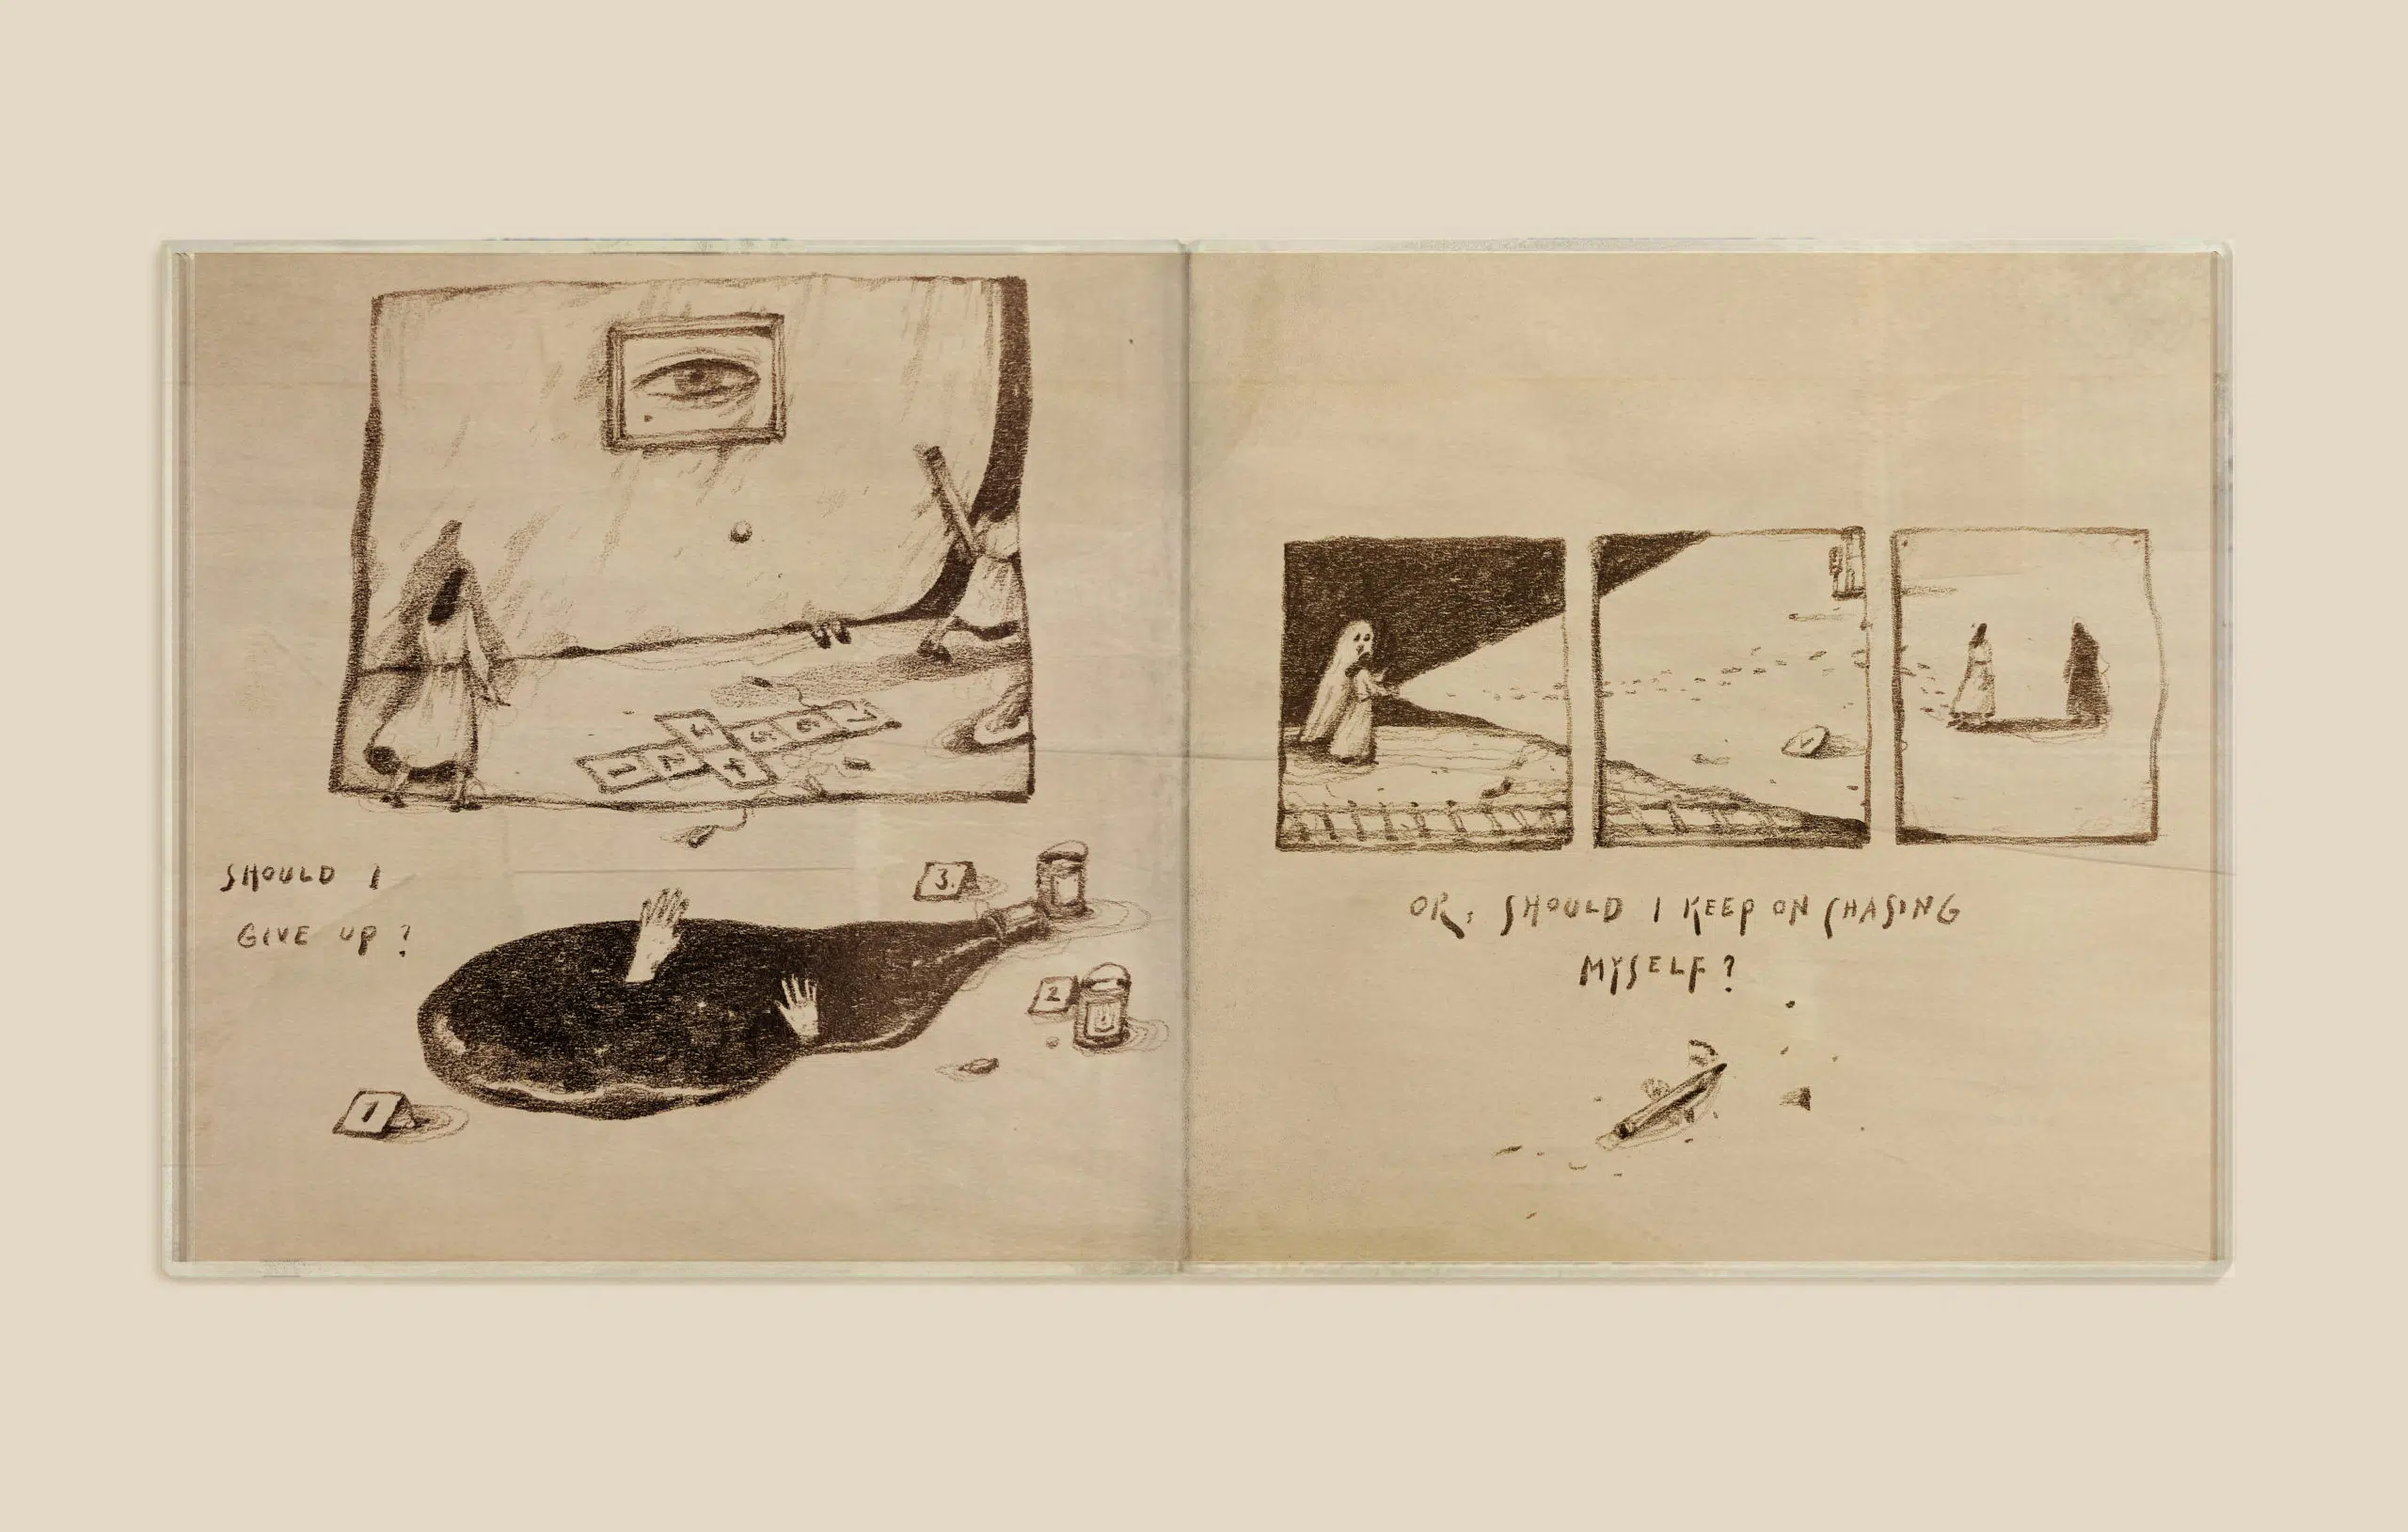 SHOULD I
GIVE UP?
3.
2
1
OR, SHOULD I KEEP ON CHASING
MYSELF?